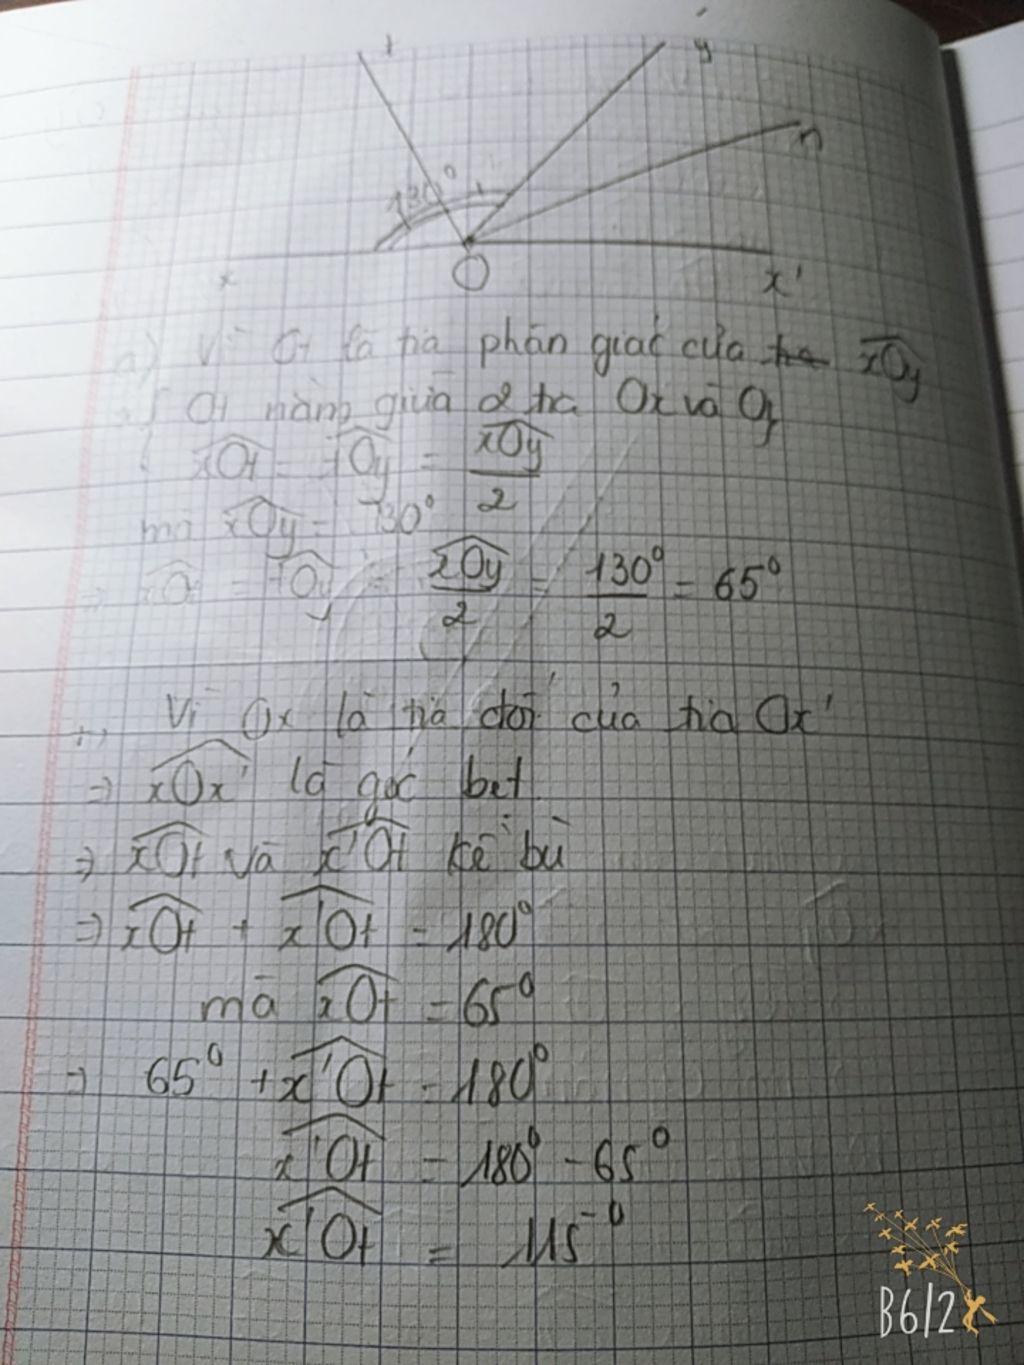 t
y
n
130°
x
O
x'
a) Vì Ot là tia phân giác của xOy
Ot nằm giữa 2 tia Ox và Oy
xOt = tOy = xOy/2
mà xOy = 130°
=> xOt = tOy = xOy/2 = 130°/2 = 65°
+, Vì Ox là tia đối của tia Ox'
=> xOx' là góc bẹt
=> xOt và x'Ot kề bù
=> xOt + x'Ot = 180°
mà xOt = 65°
=> 65° + x'Ot = 180°
x'Ot = 180° - 65°
x'Ot = 115°
B6/2